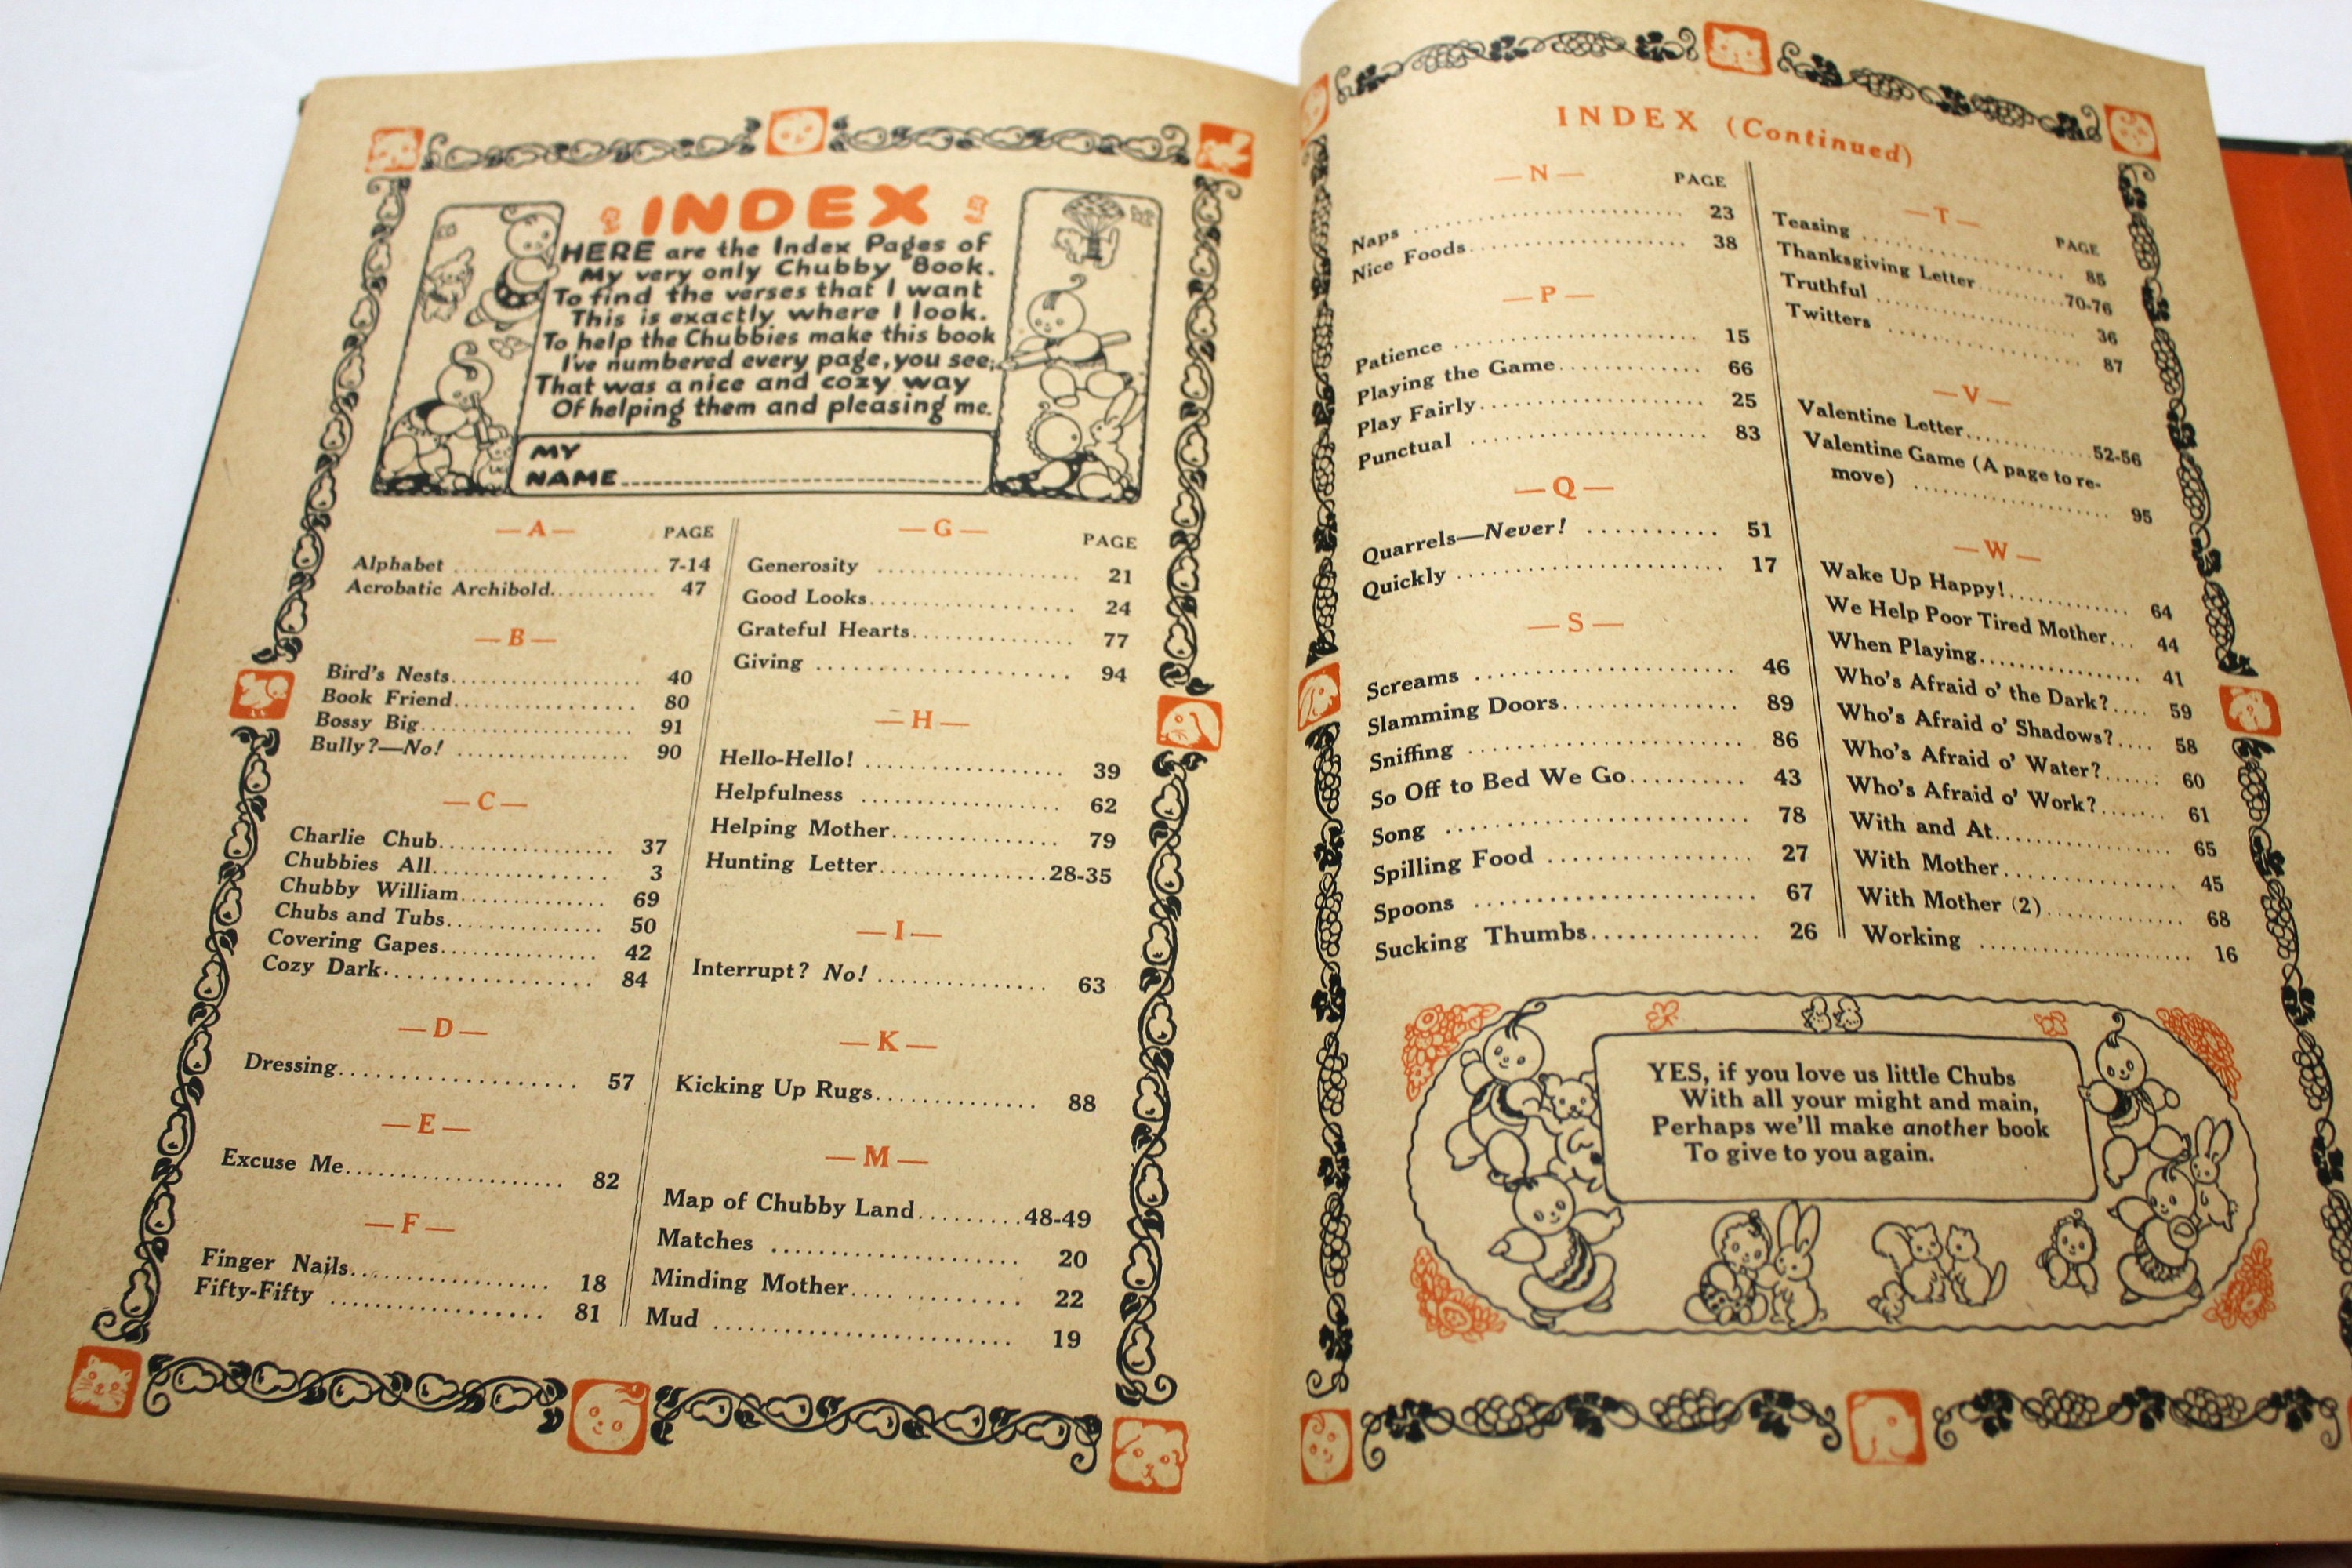 INDEX
HERE are the Index Pages of
My very only Chubby Book.
To find the verses that I want
This is exactly where I look.
To help the Chubbies make this book
I've numbered every page, you see;
That was a nice and cozy way
Of helping them and pleasing me.
MY
NAME
—A— PAGE
Alphabet 7-14
Acrobatic Archibold 47
—B—
Bird's Nests 40
Book Friend 80
Bossy Big 91
Bully?—No! 90
—C—
Charlie Chub 37
Chubbies All 3
Chubby William 69
Chubs and Tubs 50
Covering Gapes 42
Cozy Dark 84
—D—
Dressing 57
—E—
Excuse Me 82
—F—
Finger Nails 18
Fifty-Fifty 81
—G— PAGE
Generosity 21
Good Looks 24
Grateful Hearts 77
Giving 94
—H—
Hello-Hello! 39
Helpfulness 62
Helping Mother 79
Hunting Letter 28-35
—I—
Interrupt? No! 63
—K—
Kicking Up Rugs 88
—M—
Map of Chubby Land 48-49
Matches 20
Minding Mother 22
Mud 19
INDEX (Continued)
—N— PAGE
Naps 23
Nice Foods 38
—P—
Patience 15
Playing the Game 66
Play Fairly 25
Punctual 83
—Q—
Quarrels—Never! 51
Quickly 17
—S—
Screams 46
Slamming Doors 89
Sniffing 86
So Off to Bed We Go 43
Song 78
Spilling Food 27
Spoons 67
Sucking Thumbs 26
—T— PAGE
Teasing 85
Thanksgiving Letter 70-76
Truthful 36
Twitters 87
—V—
Valentine Letter 52-56
Valentine Game (A page to re-
move) 95
—W—
Wake Up Happy! 64
We Help Poor Tired Mother 44
When Playing 41
Who's Afraid o' the Dark? 59
Who's Afraid o' Shadows? 58
Who's Afraid o' Water? 60
Who's Afraid o' Work? 61
With and At 65
With Mother 45
With Mother (2) 68
Working 16
YES, if you love us little Chubs
With all your might and main,
Perhaps we'll make another book
To give to you again.